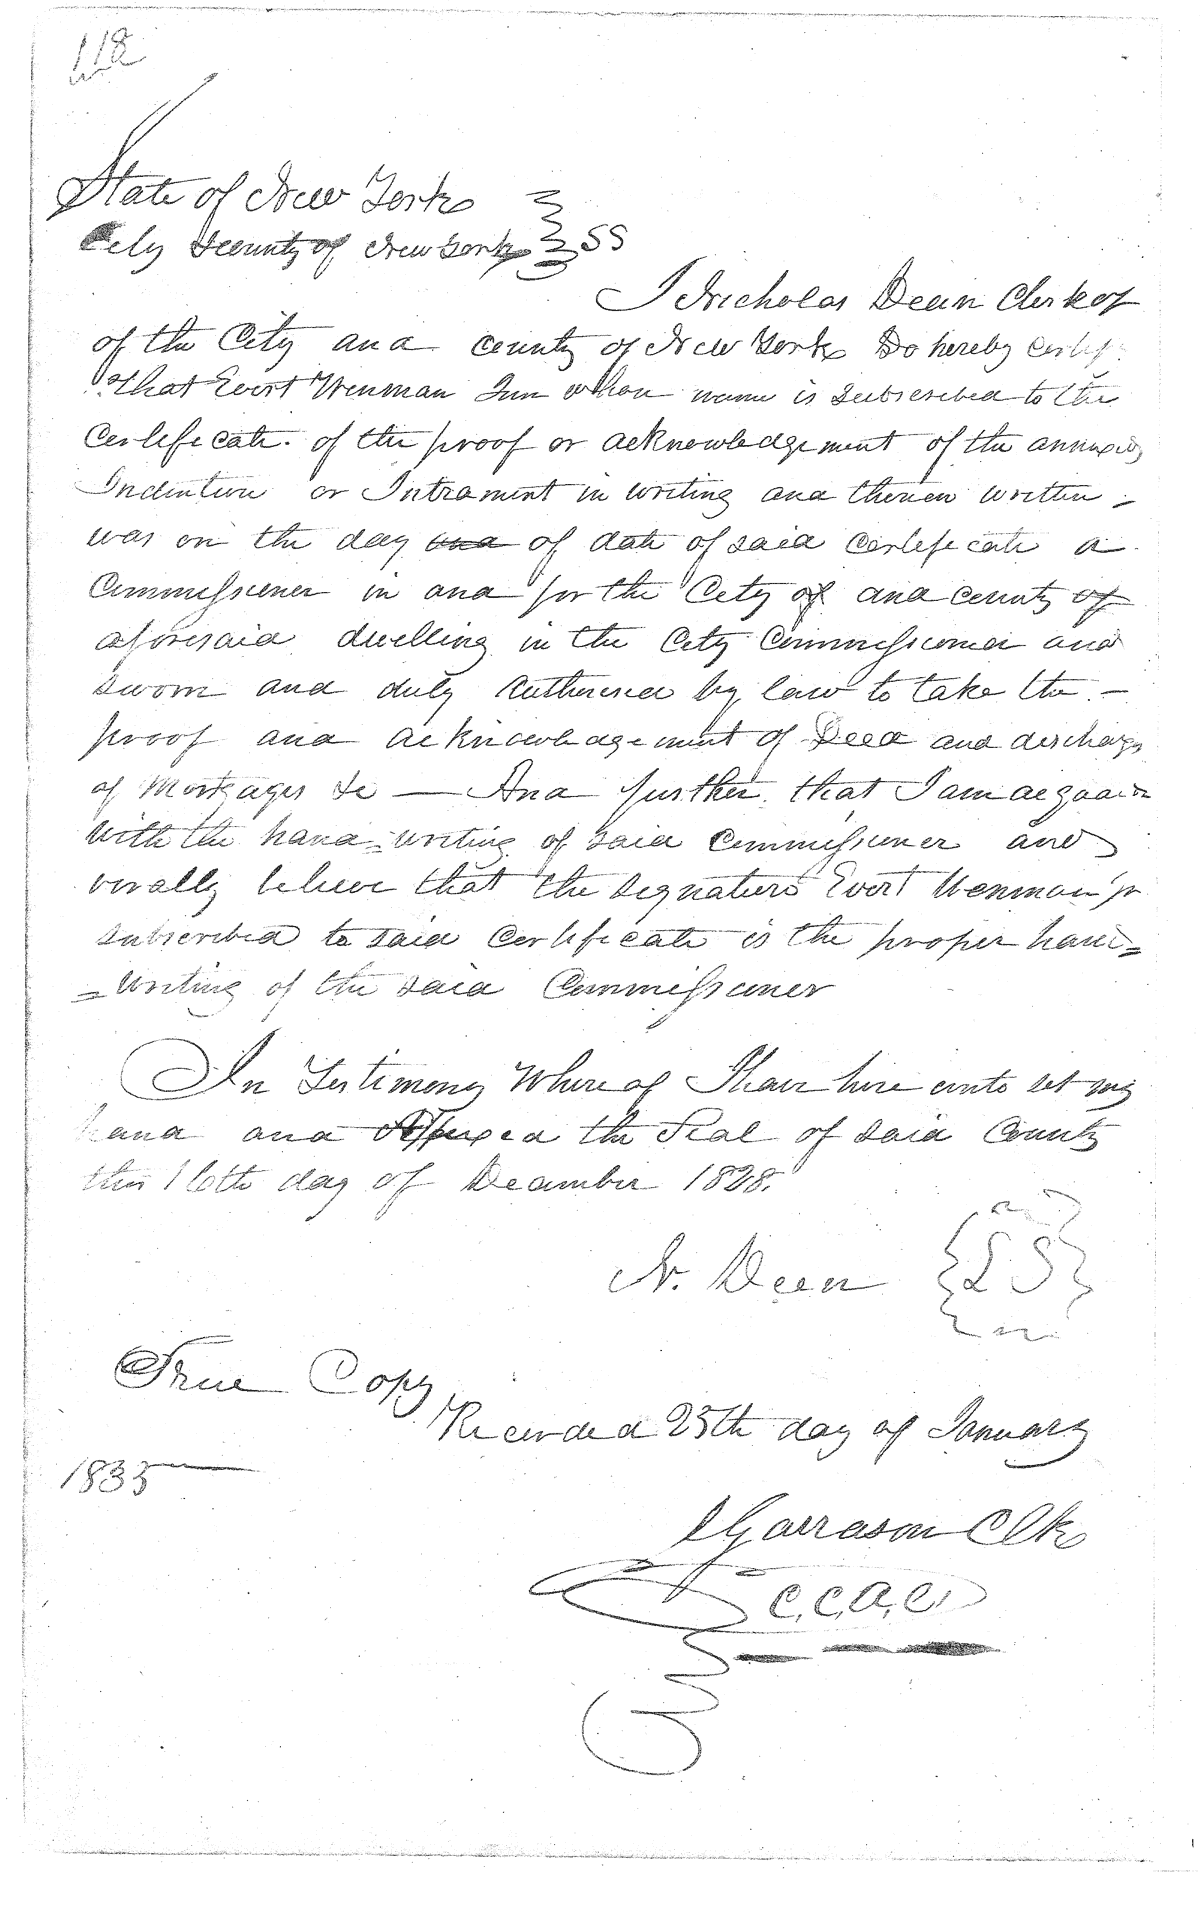 118
State of New York
City & County of New York } SS
I Nicholas Dean Clerk of
of the City and County of New York Do hereby certify
that Evert Wenman Jun whose name is Subscribed to the
Certificate of the proof or acknowledgement of the annexed
Indenture or Intrament in writing and thereon written
was on the day and of date of said Certificate a
Commissioner in and for the City of and County of
aforesaid dwelling in the City Commissioned and
sworn and duly Authorised by law to take the
proof and acknowledgement of Deed and discharge
of Mortgages &c — And further that I am acquain
with the hand-writing of said Commissioner and
verally believe that the signature Evert Wenman jr
subscribed to said Certificate is the proper hand=
=writing of the said Commissioner
In Testimony Where of I have here unto set my
hand and Affixed the Seal of said County
this 16th day of December 1828.
N. Dean {LS}
True Copy
Recorded 25th day of January
1833
Garrason Clk
C.C.A.C.